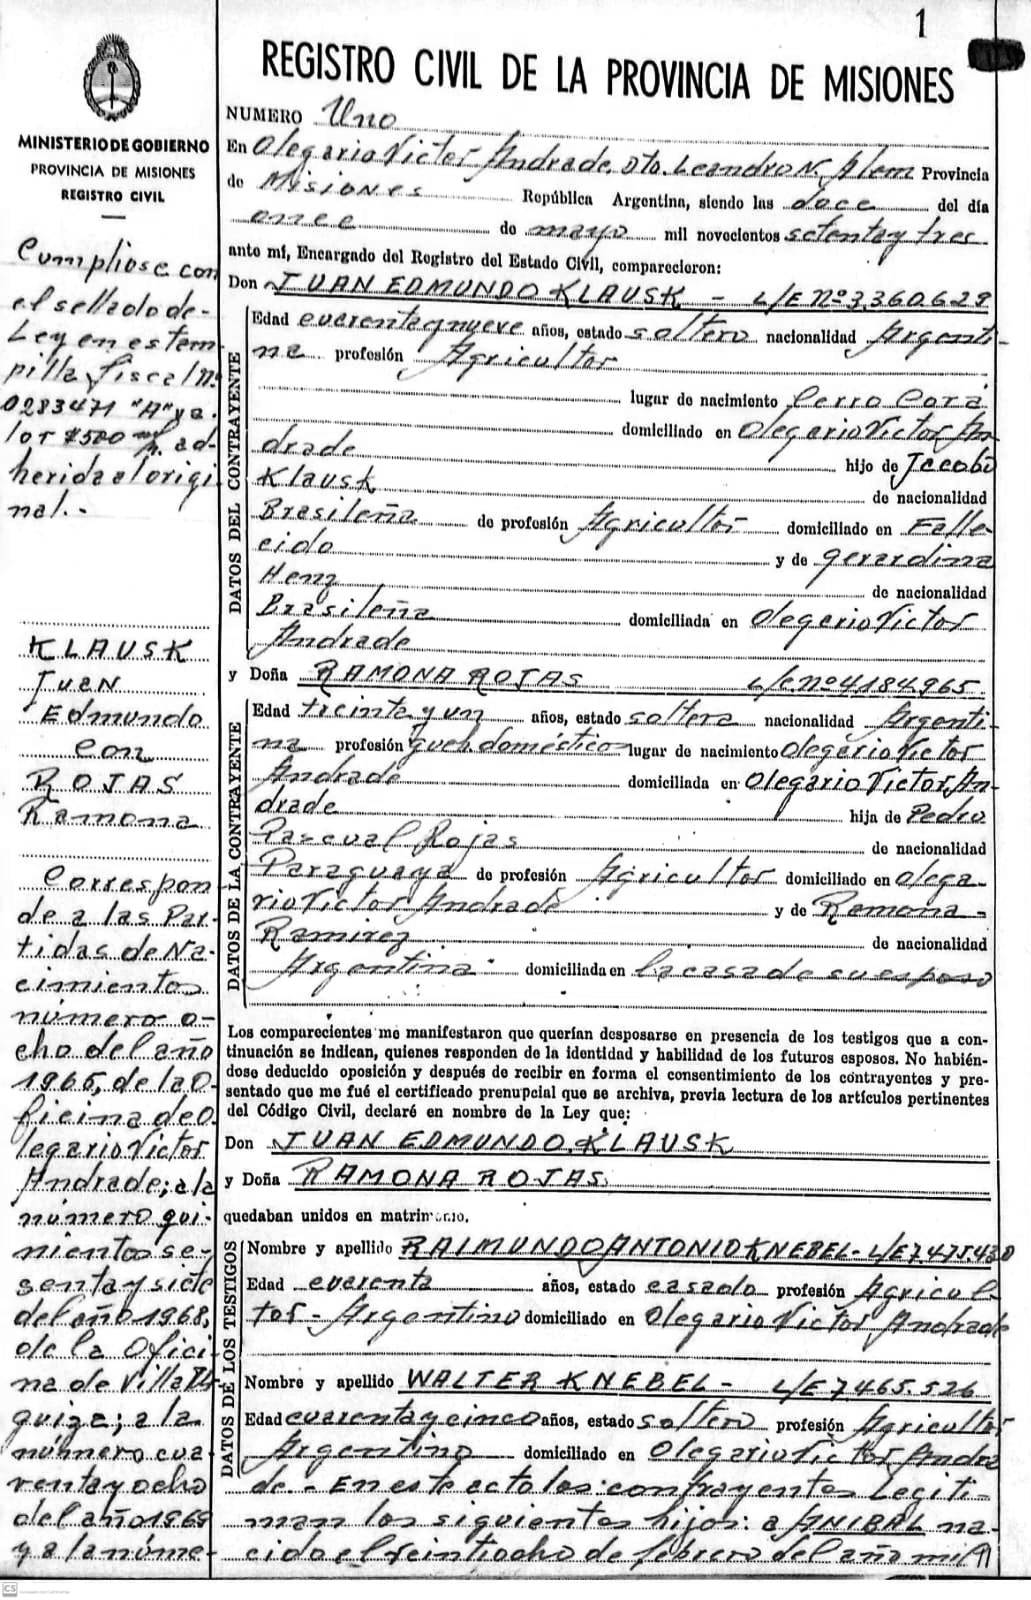 1
REGISTRO CIVIL DE LA PROVINCIA DE MISIONES
MINISTERIO DE GOBIERNO
PROVINCIA DE MISIONES
REGISTRO CIVIL
Cumpliose con
el sellado de-
Ley en estem
pilla fiscal Nº
0283471 "A" va-
lor $500 m/n. ad-
herida al origi
nal.-
KLAUSK
Juan
Edmundo
con
ROJAS
Ramona
Correspon-
de a las Par-
tidas de Na-
cimientos
número o-
cho del año
1965, de la O-
ficina de O-
legario Victor
Andrade; a la
número qui-
nientos se-
senta y siete
del año 1968,
de la Ofici-
na de Villa Ur
quiza; a la
número cua-
renta y ocho
del año 1969
y a la núme-
NUMERO Uno
En Olegario Victor Andrade, Dto. Leandro N. Alem Provincia
de Misiones República Argentina, siendo las doce del día
once de mayo mil novecientos setenta y tres
ante mí, Encargado del Registro del Estado Civil, comparecieron:
Don JUAN EDMUNDO KLAUSK - L/E Nº 3.360.629
DATOS DEL CONTRAYENTE
Edad cuarenta y nueve años, estado soltero nacionalidad Argenti-
na profesión Agricultor
lugar de nacimiento Cerro Corá
domiciliado en Olegario Victor An
drade hijo de Jacobo
Klausk de nacionalidad
Brasileña de profesión Agricultor domiciliado en Falle-
cido y de Gerardina
Henz de nacionalidad
Brasileña domiciliada en Olegario Victor
Andrade
y Doña RAMONA ROJAS L/C. nº 4184.965.
DATOS DE LA CONTRAYENTE
Edad treinta y un años, estado soltera nacionalidad Argenti
na profesión queh. doméstico lugar de nacimiento Olegario Victor
Andrade domiciliada en Olegario Victor An-
drade hija de Pedro
Pascual Rojas de nacionalidad
Paraguaya de profesión Agricultor domiciliado en Olega-
rio Victor Andrade y de Ramona -
Ramirez de nacionalidad
Argentina domiciliada en la casa de su esposo
Los comparecientes me manifestaron que querían desposarse en presencia de los testigos que a con-
tinuación se indican, quienes responden de la identidad y habilidad de los futuros esposos. No habién-
dose deducido oposición y después de recibir en forma el consentimiento de los contrayentes y pre-
sentado que me fué el certificado prenupcial que se archiva, previa lectura de los artículos pertinentes
del Código Civil, declaré en nombre de la Ley que:
Don JUAN EDMUNDO KLAUSK
y Doña RAMONA ROJAS
quedaban unidos en matrimonio.
DATOS DE LOS TESTIGOS
Nombre y apellido RAIMUNDO ANTONIO KNEBEL - L/E 7.475.430
Edad cuarenta años, estado casado profesión Agricul-
tor - Argentino domiciliado en Olegario Victor Andrade
Nombre y apellido WALTER KNEBEL - L/E 7.465.526
Edad cuarenta y cinco años, estado soltero profesión Agricultor
Argentino domiciliado en Olegario Victor Andra
de.- En este acto los contrayentes Legiti-
man los siguientes hijos: a ANIBAL na-
cido el veintiocho de febrero del año mil
CS